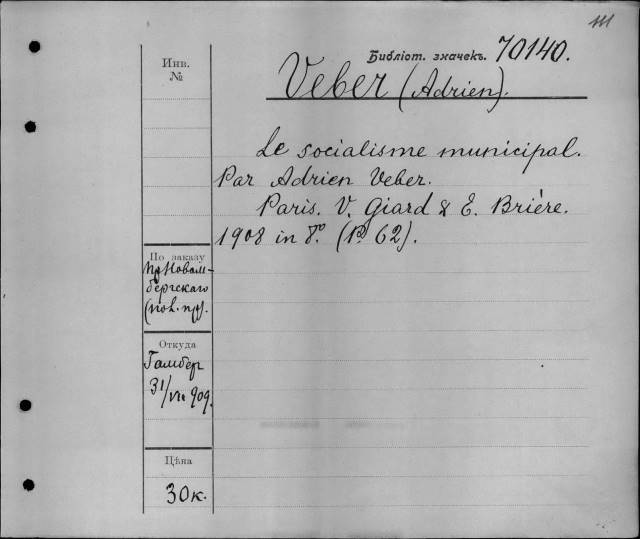 Библіот. значекъ. 70140.
Инв.
№
Veber (Adrien).
Le socialisme municipal.
Par Adrien Veber.
Paris. V. Giard & E. Brière.
1908 in 8°. (62).
По заказу
Новом-
бергскаго
Откуда
Гамбер
31/VII 909.
Цѣна
30к.